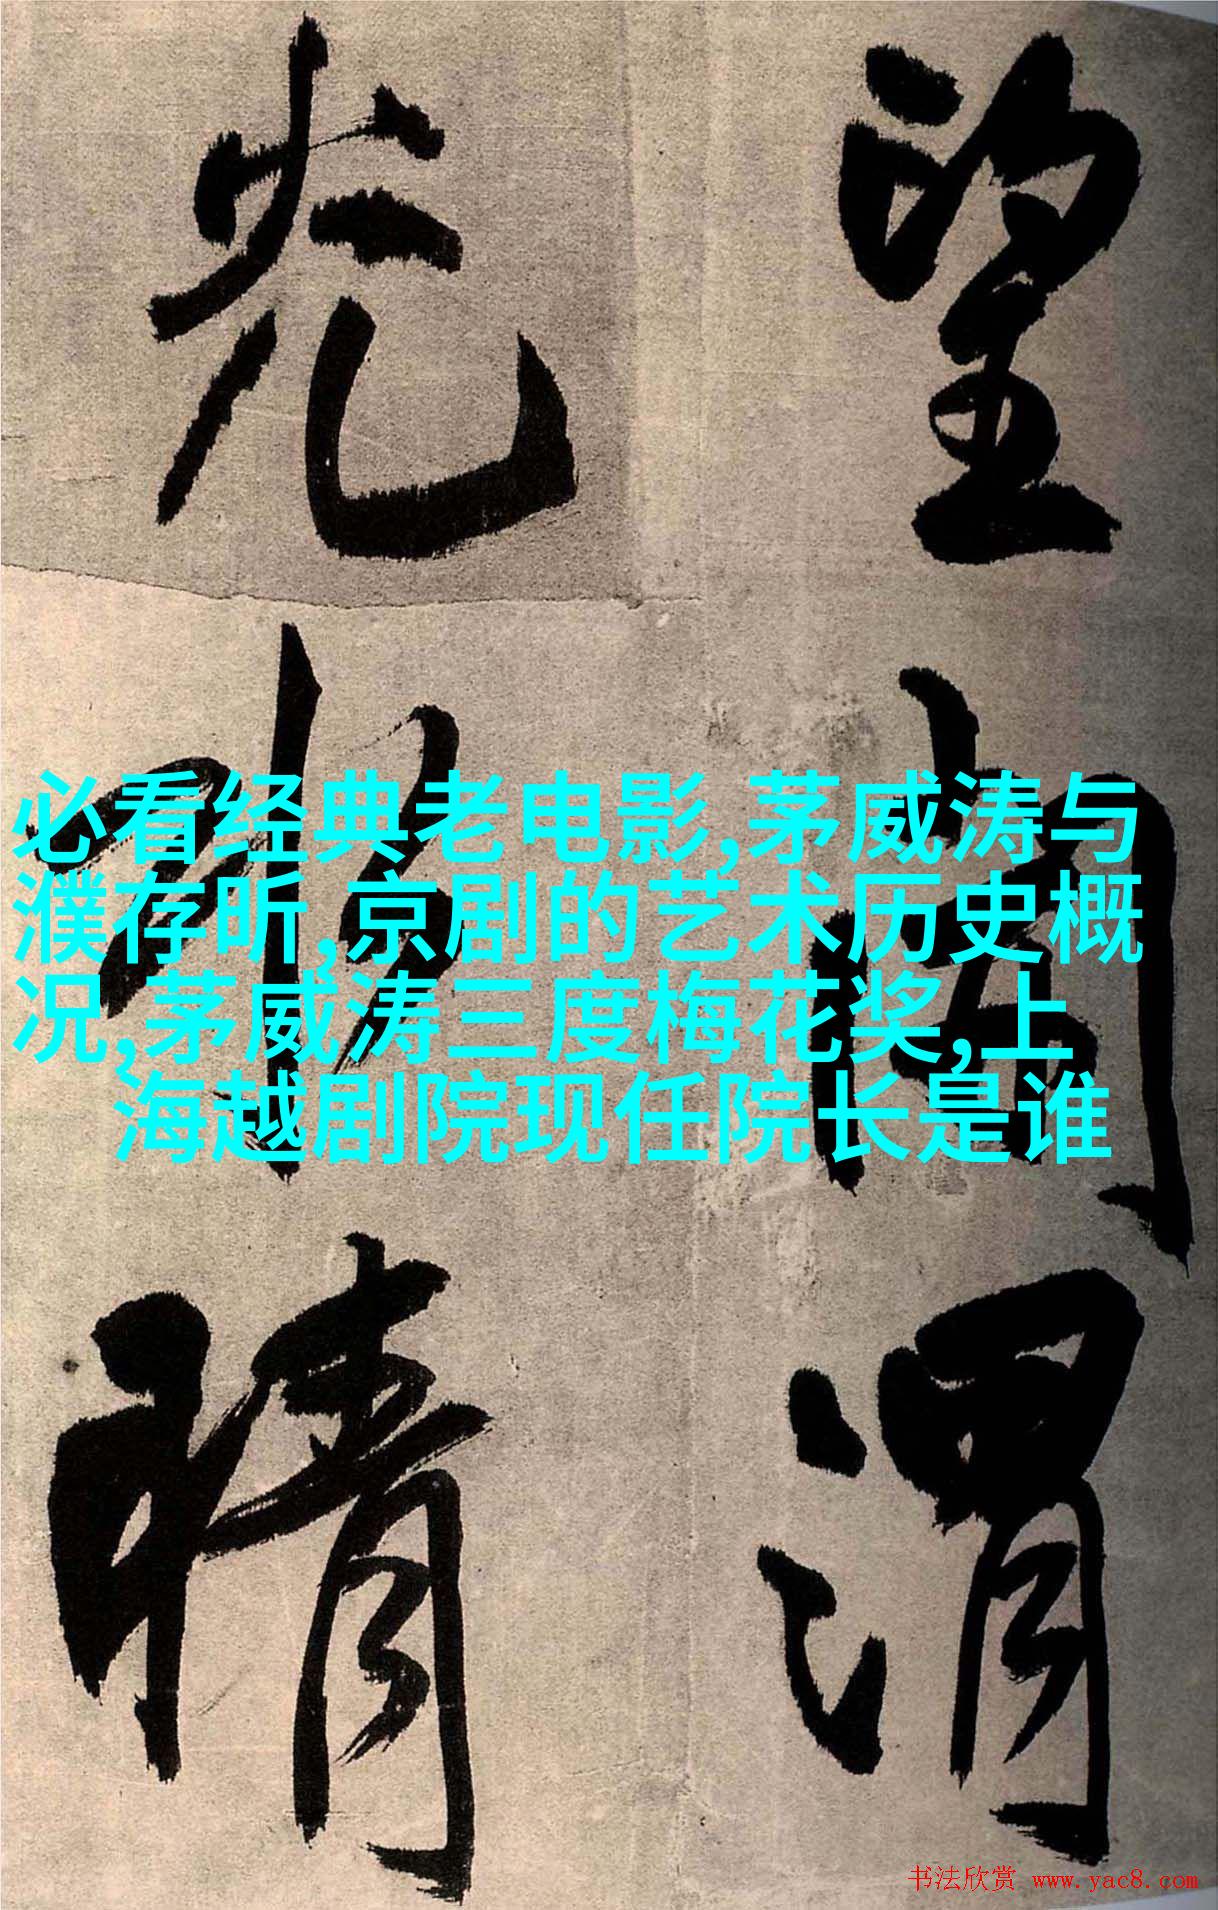 必看经典老电影,茅威涛与
濮存昕,京剧的艺术历史概
况,茅威涛三度梅花奖,上
海越剧院现任院长是谁
望渭
光水晴
书法欣赏 www.yac8.com